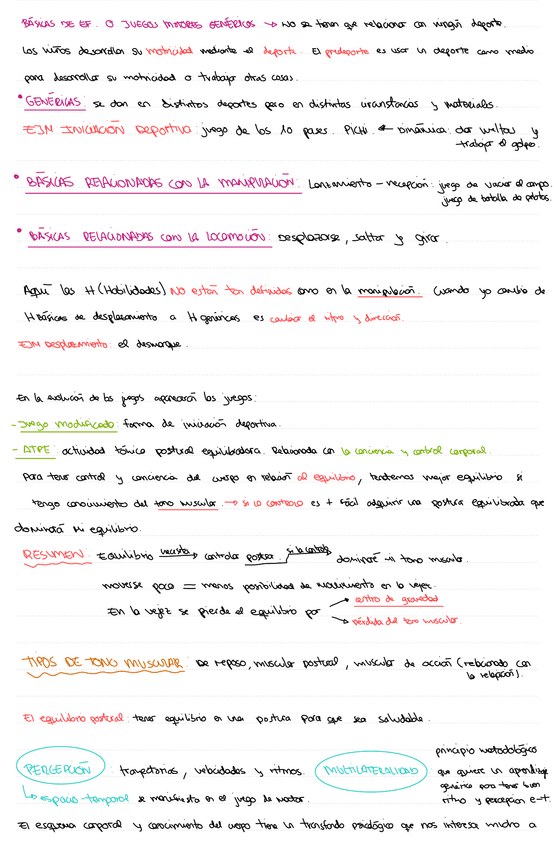 BÁSICAS DE EF. O JUEGOS MENORES GENÉRICOS → No se tienen que relacionar con ningún deporte.
Los niños desarrollan su motricidad mediante el deporte. El predeporte es usar un deporte como medio
para desarrollar su motricidad o trabajar otras cosas.
• GENÉRICAS: se dan en distintos deportes pero en distintas circunstancias y materiales.
EJM INICIACIÓN DEPORTIVA: juego de los 10 pases. Pichi ← Dinámica dar vueltas y
→trabajar el golpeo.
• BÁSICAS RELACIONADAS CON LA MANIPULACIÓN: Lanzamiento – recepción: juego de vaciar el campo.
juego de batalla de pelotas.
• BÁSICAS RELACIONADAS CON LA LOCOMOCIÓN: Desplazarse, saltar y girar.
Aquí las H (Habilidades) NO están tan definidas como en la manipulación. Cuando yo cambio de
H Básicas de desplazamiento a H genéricas es cambiar el ritmo y dirección.
EJM Desplazamiento: el desmarque.
En la evolución de los juegos aparecerán los juegos:
- Juego modificado: forma de iniciación deportiva.
- ATPE: actividad tónico postural equilibradora. Relacionada con la conciencia y control corporal.
Para tener control y conciencia del cuerpo en relación al equilibrio, tendremos mejor equilibrio si
tengo conocimiento del tono muscular. → si lo controlo es + fácil adquirir una postura equilibrada que
dominará mi equilibrio.
RESUMEN: Equilibrio necesito→ controlar postura si la controlo→ dominaré mi tono muscular.
moverse poco = menos posibilidad de movimiento en la vejez.
En la vejez se pierde el equilibrio por → centro de gravedad
→ pérdida del tono muscular.
TIPOS DE TONO MUSCULAR: De reposo, muscular postural, muscular de acción (relacionado con
la relajación).
El equilibrio postural: tener equilibrio en una postura para que sea saludable.
PERCEPCIÓN: trayectorias, velocidades y ritmos.
↳ espacio temporal se manifiesta en el juego de
MULTILATERALIDAD principio metodológico
que quiere un aprendizaje
genérico para tener buen
ritmo y percepción e-t.
El esquema corporal y conocimiento del cuerpo tiene un trasfondo psicológico que nos interesa mucho a